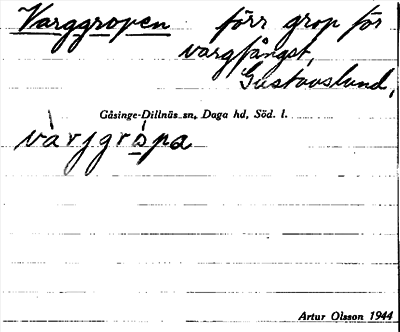 Varggropen förr grop för
vargfångst,
Gustavslund,
Gåsinge-Dillnäs sn, Daga hd, Söd. l.
vàrjgró̲pa
Artur Olsson 1944